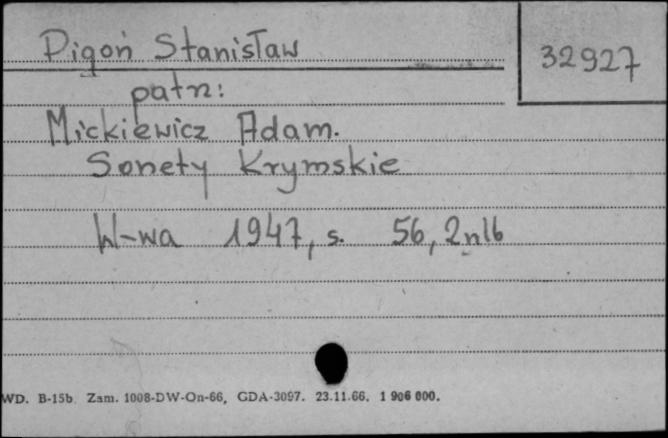 Pigoń Stanisław
32927
patrz:
Mickiewicz Adam.
Sonety Krymskie
W-wa 1947, s. 56, 2nlb
WD. B-15b Zam. 1008-DW-On-66, GDA-3097. 23.11.66. 1 906 000.